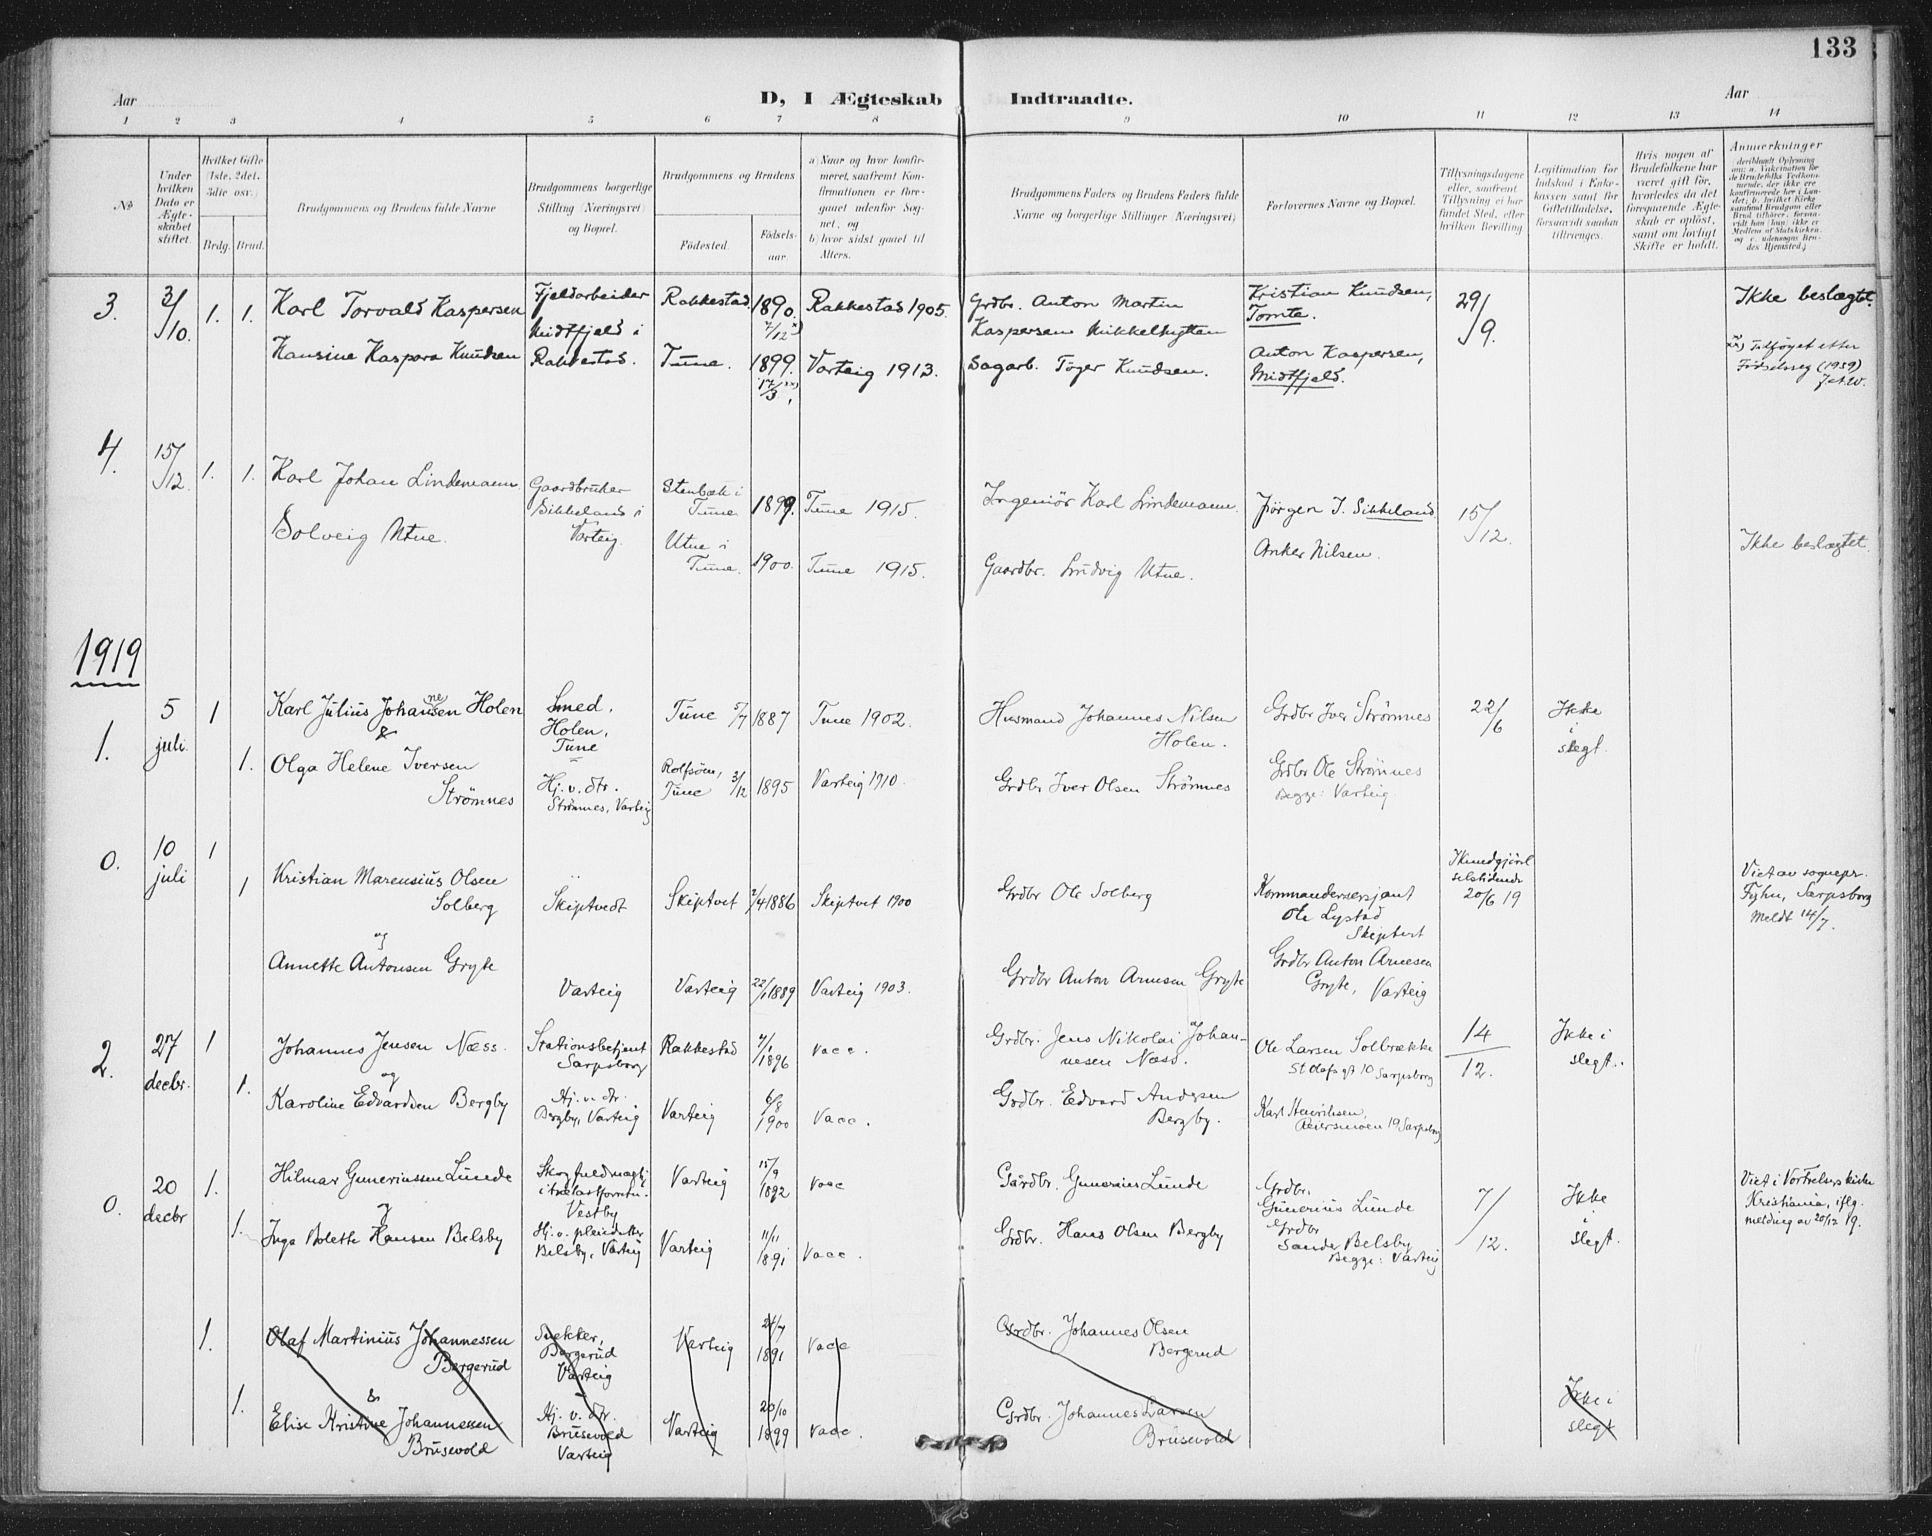 133
Aar
D, I Ægteskab Indtraadte.
Aar
1 2 3 4 5 6 7 8 9 10 11 12 13 14
No
Under hvilken Dato er Ægte-skabet stiftet.
Hvilket Gifte (1ste, 2det, 3die osv.)
Brdg. Brud.
Brudgommens og Brudens fulde Navne
Brudgommens borgerlige Stilling (Næringsvei) og Bopæl.
Brudgommens og Brudens
Fødested.
Fødsels-aar.
a) Naar og hvor konfir-meret, saafremt Kon-firmationen er fore-gaaet udenfor Sog-net, og
b) hvor sidst gaaet til Alters.
Brudgommens Faders og Brudens Faders fulde Navne og borgerlige Stillinger (Næringsvei)
Forlovernes Navne og Bopæl.
Tillysningsdagene eller, saafremt Tillysning ei har fundet Sted, efter hvilken Bevilling.
Legitimation for Indskud i Enke-kassen samt for Giftetilladelse, forsaavidt saadan tiltrænges.
Hvis nogen af Brudefolkene har været gift før, hvorledes da det foregaaende Ægte-skab er opløst, samt om lovligt Skifte er holdt.
Anmerkninger
3. 3/10. 1. 1. Karl Torvald Kaspersen Fjeldarbeider Midtfjeld i Rakkestad. Rakkestad 1890. 7/12 x) Rakkestad 1905. Grdbr. Anton Martin Kaspersen Mikkelhytten Kristian Knudsen, Tomta. 29/9. Ikke beslægtet.
Hansine Kaspara Knudsen Tune. 1899. 17/3 xx) Varteig 1913. Sagarb. Tøger Knudsen. Anton Kaspersen, Midtfjeld. Tilføyet etter Fødselsreg (1959)
4. 15/12. 1. 1. Karl Johan Lindemann. Gaardbruker Sikkeland i Varteig. Stenbæk i Tune 1899. Tune 1915. Ingeniör Karl Lindemann. Jörgen J. Sikkeland. 15/12.
Solveig Utne. Utne i Tune. 1900. Tune 1915. Gaardbr. Ludvig Utne. Anker Nilsen. Ikke beslægtet.
1919
1. 5 juli 1 Karl Julius Johansen Holen Smed, Holen, Tune Tune 5/7 1887 Tune 1902. Husmand Johannes Nilsen Holen. Grdbr Iver Strømnes 22/6 Ikke i slegt.
&
1. Olga Helene Iversen Strømnes Hj. v. dtr. Strømnes, Varteig Rolfsøen, Tune 3/12 1895 Varteig 1910. Grdbr Iver Olsen Strømnes Grdbr Ole Strømnes Begge: Varteig
0. 10 juli 1 Kristian Marensius Olsen Solberg Skiptvedt Skiptvet 2/4 1886 Skiptvet 1900 Grdbr Ole Solberg Kommandersersjant Ole Lystad Skiptvet 20/6 19 Viet av sognepr. Fyhn, Sarpsborg Meldt 14/7.
og
1 Annette Antonsen Gryte Varteig Varteig 22/1 1889 Varteig 1903. Grdbr Anton Arnesen Gryte Grdbr Anton Arnesen Gryte, Varteig
2. 27 decbr. 1 Johannes Jensen Næss. Stationsbetjent Sarpsborg Rakkestad 7/1 1896 vacc. Grdbr. Jens Nikolai Johan-nesen Næss. Ole Larsen Solbrække St Olafs gt 10 Sarpsborg 14/12. Ikke i slegt.
og
1. Karoline Edvardsen Bergby Hj. v. dtr. Bergby, Varteig Varteig 6/8 1900 vacc. Grdbr. Edvard Andersen Bergby. Karl Henriksen, Reiersmoen 19 Sarpsborg
0. 20 decbr 1. Hilmar Gunerinssen Lunde Skogfuldmægtig Vestby Varteig 15/9 1892 vacc Gårdbr. Gunerius Lunde Grdbr. Gunerius Lunde 7/12. Ikke i slegt. Viet i Vor Frelsers kirke Kristiania, iflg. melding av 20/12 19.
og
1. Inga Bolette Hansen Belsby Hj. v. pleiedatter Belsby, Varteig Varteig 11/11 1891 vacc. Grdbr. Hans Olsen Bergby Grdbr Sander Belsby Begge: Varteig
1. Olaf Martinius Johannessen Bergerud Snekker, Bergerud Varteig Varteig 24/7 1891 vacc Grdbr. Johannes Olsen Bergerud
&
1. Elise Kristine Johannessen Brusevold Hj. v. dtr. Brusevold Varteig Varteig 20/10 1899 vacc. Grdbr. Johannes Larsen Brusevold Ikke i slegt